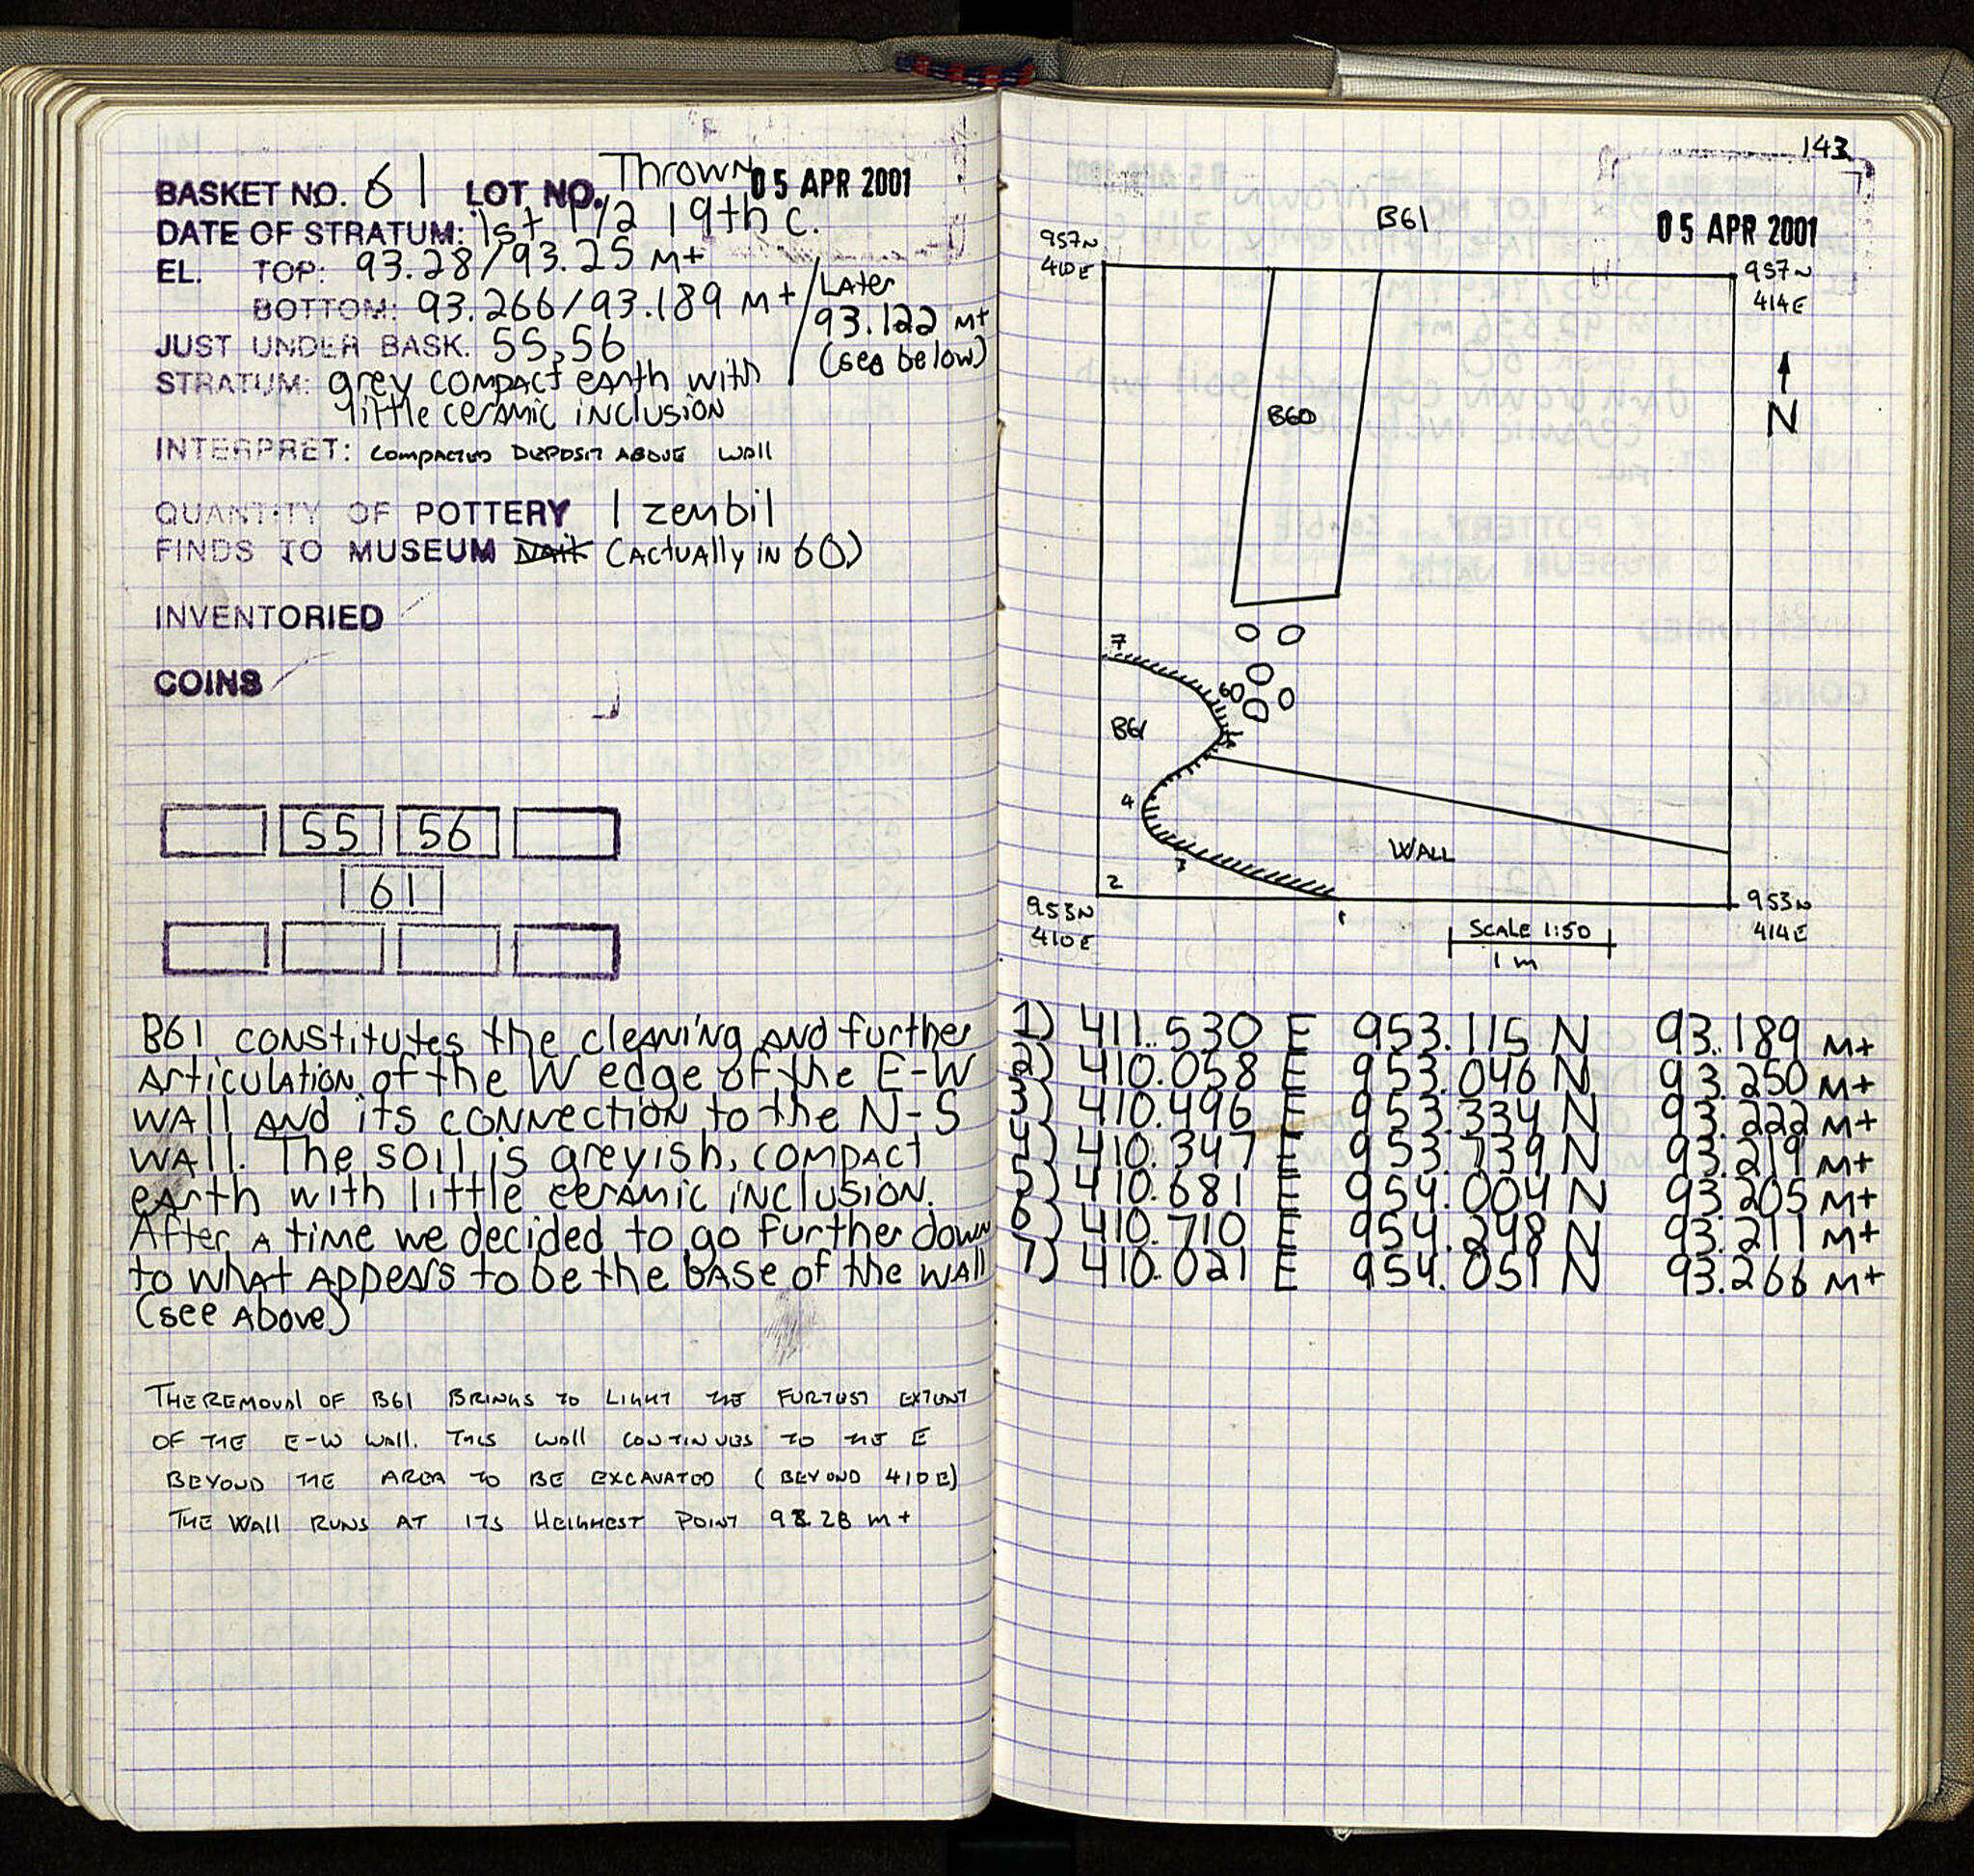 BASKET NO. 61 LOT NO. Thrown 05 APR 2001
DATE OF STRATUM: 1st 1/2 19th c.
EL. TOP: 93.28/93.25 m+
BOTTOM: 93.266/93.189 m+ / Later
93.122 m+
(see below)
JUST UNDER BASK. 55,56
STRATUM: grey compact earth with
little ceramic inclusion
INTERPRET: COMPACTED DEPOSIT ABOVE WALL
QUANTITY OF POTTERY 1 zembil
FINDS TO MUSEUM Nail (Actually in 60)
INVENTORIED
COINS
55 56
61
B61 constitutes the cleaning and further
articulation of the W edge of the E-W
wall and its connection to the N-S
wall. The soil is greyish, compact
earth with little ceramic inclusion.
After a time we decided to go further down
to what appears to be the base of the wall
(see above)
THE REMOVAL OF B61 BRINGS TO LIGHT THE FURTEST EXTENT
OF THE E-W WALL. THIS WALL CONTINUES TO THE E
BEYOND THE AREA TO BE EXCAVATED (BEYOND 410E)
THE WALL RUNS AT ITS HEIGHEST POINT 93.28 m+
143
B61
05 APR 2001
957N
410E
957N
414E
N
B60
7
6
B61
5
4
WALL
3
2
1
953N
410E
953N
414E
SCALE 1:50
1 m
1) 411.530 E 953.115 N 93.189 m+
2) 410.058 E 953.046 N 93.250 m+
3) 410.496 E 953.334 N 93.222 m+
4) 410.347 E 953.739 N 93.219 m+
5) 410.681 E 954.004 N 93.205 m+
6) 410.710 E 954.248 N 93.211 m+
7) 410.021 E 954.051 N 93.266 m+